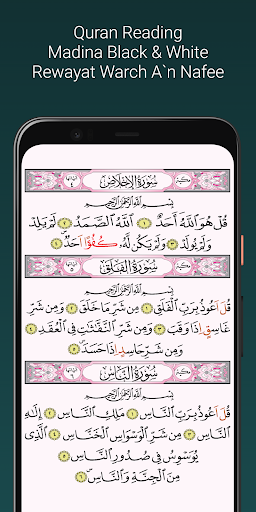 Quran Reading
Madina Black & White
Rewayat Warch A`n Nafee
مكية سُورَةُ الإِخْلَاصِ ءاياتها ٤
بِسْمِ اللَّهِ الرَّحْمَٰنِ الرَّحِيمِ
قُلْ هُوَ اللَّهُ أَحَدٌ ١ اللَّهُ الصَّمَدُ ٢ لَمْ يَلِدْ
وَلَمْ يُولَدْ ٣ وَلَمْ يَكُن لَّهُۥ كُفُؤًا اَحَدٌ ٤
مكية سُورَةُ الْفَلَقِ ءاياتها ٥
بِسْمِ اللَّهِ الرَّحْمَٰنِ الرَّحِيمِ
قُلَ اَعُوذُ بِرَبِّ الْفَلَقِ ١ مِن شَرِّ مَا خَلَقَ ٢ وَمِن شَرِّ
غَاسِقٍ اِذَا وَقَبَ ٣ وَمِن شَرِّ النَّفَّٰثَٰتِ فِي الْعُقَدِ ٤
وَمِن شَرِّ حَاسِدٍ اِذَا حَسَدَ ٥
مكية سُورَةُ النَّاسِ ءاياتها ٦
بِسْمِ اللَّهِ الرَّحْمَٰنِ الرَّحِيمِ
قُلَ اَعُوذُ بِرَبِّ النَّاسِ ١ مَلِكِ النَّاسِ ٢ إِلَٰهِ
النَّاسِ ٣ مِن شَرِّ الْوَسْوَاسِ الْخَنَّاسِ ٤ الَّذِي
يُوَسْوِسُ فِي صُدُورِ النَّاسِ ٥
مِنَ الْجِنَّةِ وَالنَّاسِ ٦